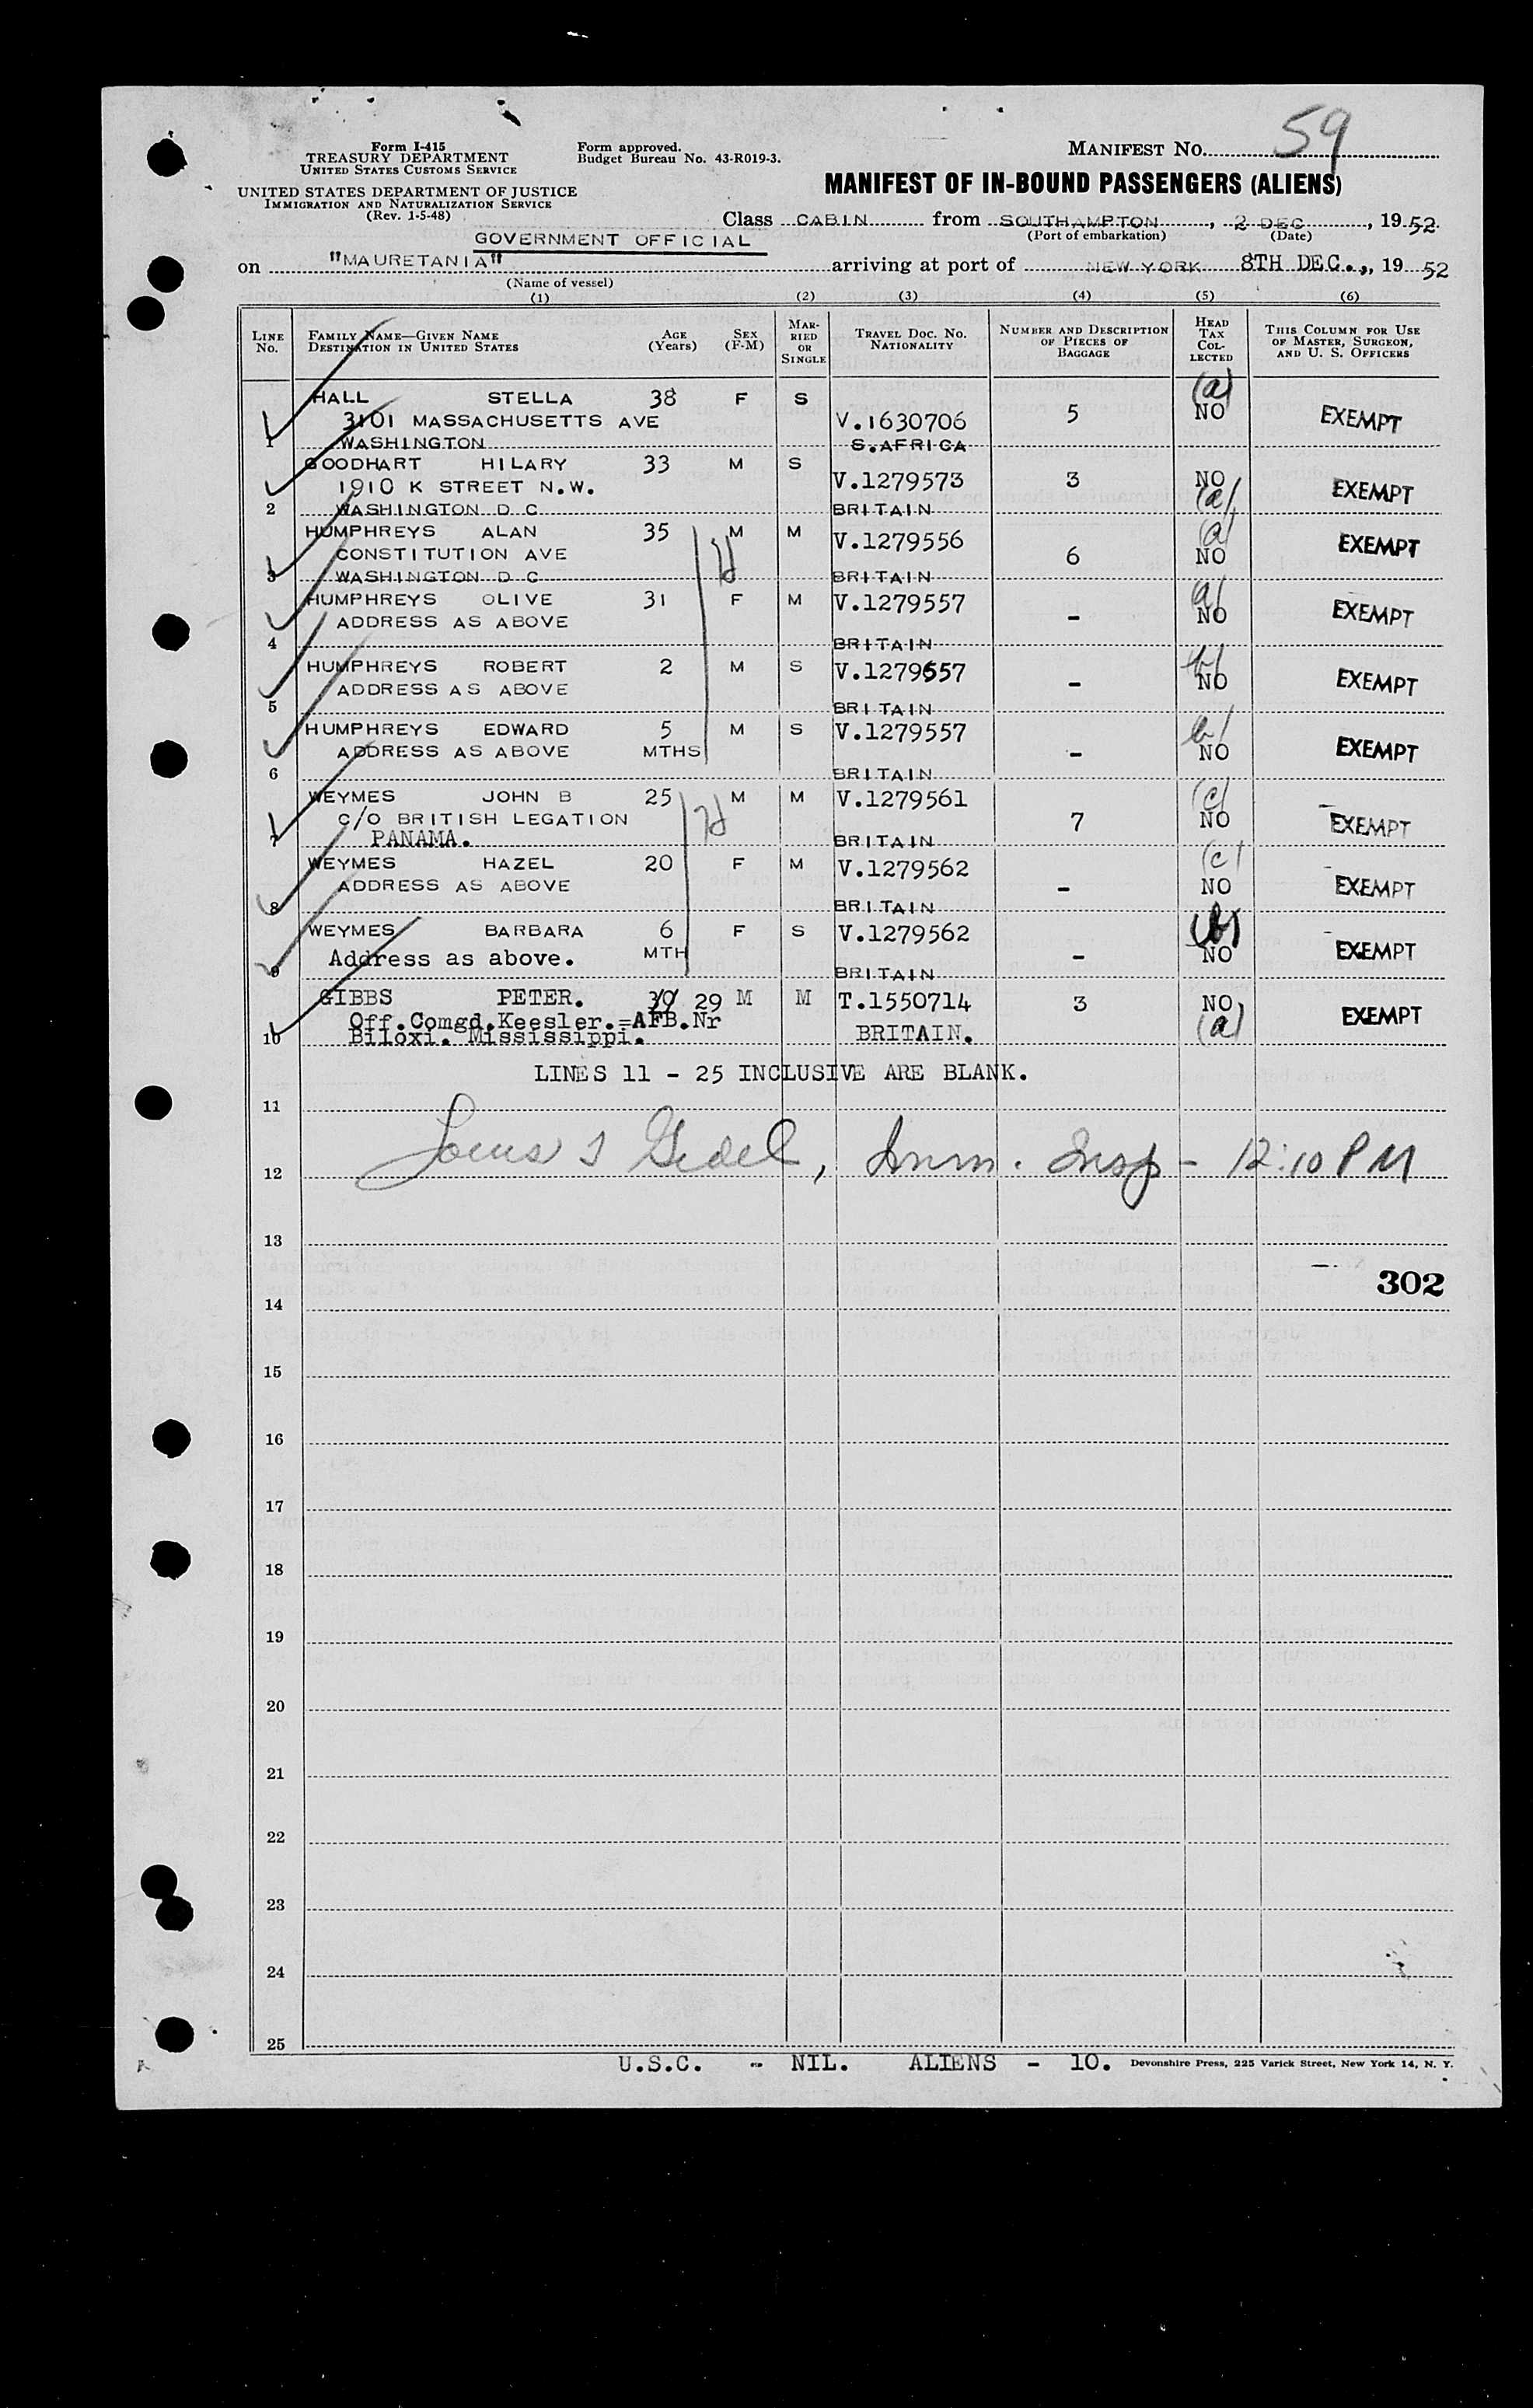 59
Form I-415
TREASURY DEPARTMENT
UNITED STATES CUSTOMS SERVICE
Form approved.
Budget Bureau No. 43-R019-3.
MANIFEST NO.
UNITED STATES DEPARTMENT OF JUSTICE
IMMIGRATION AND NATURALIZATION SERVICE
(Rev. 1-5-48)
MANIFEST OF IN-BOUND PASSENGERS (ALIENS)
Class CABIN from SOUTHAMPTON, 2 DEC, 1952
(Port of embarkation) (Date)
GOVERNMENT OFFICIAL
on "MAURETANIA" arriving at port of NEW YORK 8TH DEC., 1952
(Name of vessel)
(1) (2) (3) (4) (5) (6)
LINE No. FAMILY NAME—GIVEN NAME DESTINATION IN UNITED STATES AGE (Years) SEX (F-M) MARRIED OR SINGLE TRAVEL DOC. NO. NATIONALITY NUMBER AND DESCRIPTION OF PIECES OF BAGGAGE HEAD TAX COLLECTED THIS COLUMN FOR USE OF MASTER, SURGEON, AND U. S. OFFICERS
HALL STELLA 38 F S (a)
3101 MASSACHUSETTS AVE V.1630706 5 NO EXEMPT
1 WASHINGTON S.AFRICA
GOODHART HILARY 33 M S
1910 K STREET N.W. V.1279573 3 NO EXEMPT
2 WASHINGTON D C BRITAIN (a)
HUMPHREYS ALAN 35 M M V.1279556 (a) EXEMPT
CONSTITUTION AVE 6 NO
3 WASHINGTON D C BRITAIN
HUMPHREYS OLIVE 31 F M V.1279557 (a)
ADDRESS AS ABOVE - NO EXEMPT
4 BRITAIN
HUMPHREYS ROBERT 2 M S V.1279557 (b)
ADDRESS AS ABOVE - NO EXEMPT
5 BRITAIN
HUMPHREYS EDWARD 5 M S V.1279557 (b)
ADDRESS AS ABOVE MTHS - NO EXEMPT
6 BRITAIN
WEYMES JOHN B 25 M M V.1279561 (c)
C/O BRITISH LEGATION 7 NO EXEMPT
7 PANAMA. BRITAIN
WEYMES HAZEL 20 F M V.1279562 (c)
ADDRESS AS ABOVE - NO EXEMPT
8 BRITAIN
WEYMES BARBARA 6 F S V.1279562 (b)
Address as above. MTH - NO EXEMPT
9 BRITAIN
GIBBS PETER. 30 29 M M T.1550714 3 NO EXEMPT
Off.Comgd.Keesler.=AFB.Nr (a)
10 Biloxi. Mississippi. BRITAIN.
LINES 11 - 25 INCLUSIVE ARE BLANK.
11
12 Imm. Insp - 12:10 PM
13
302
14
15
16
17
18
19
20
21
22
23
24
25
U.S.C. - NIL. ALIENS - 10. Devonshire Press, 225 Varick Street, New York 14, N. Y.